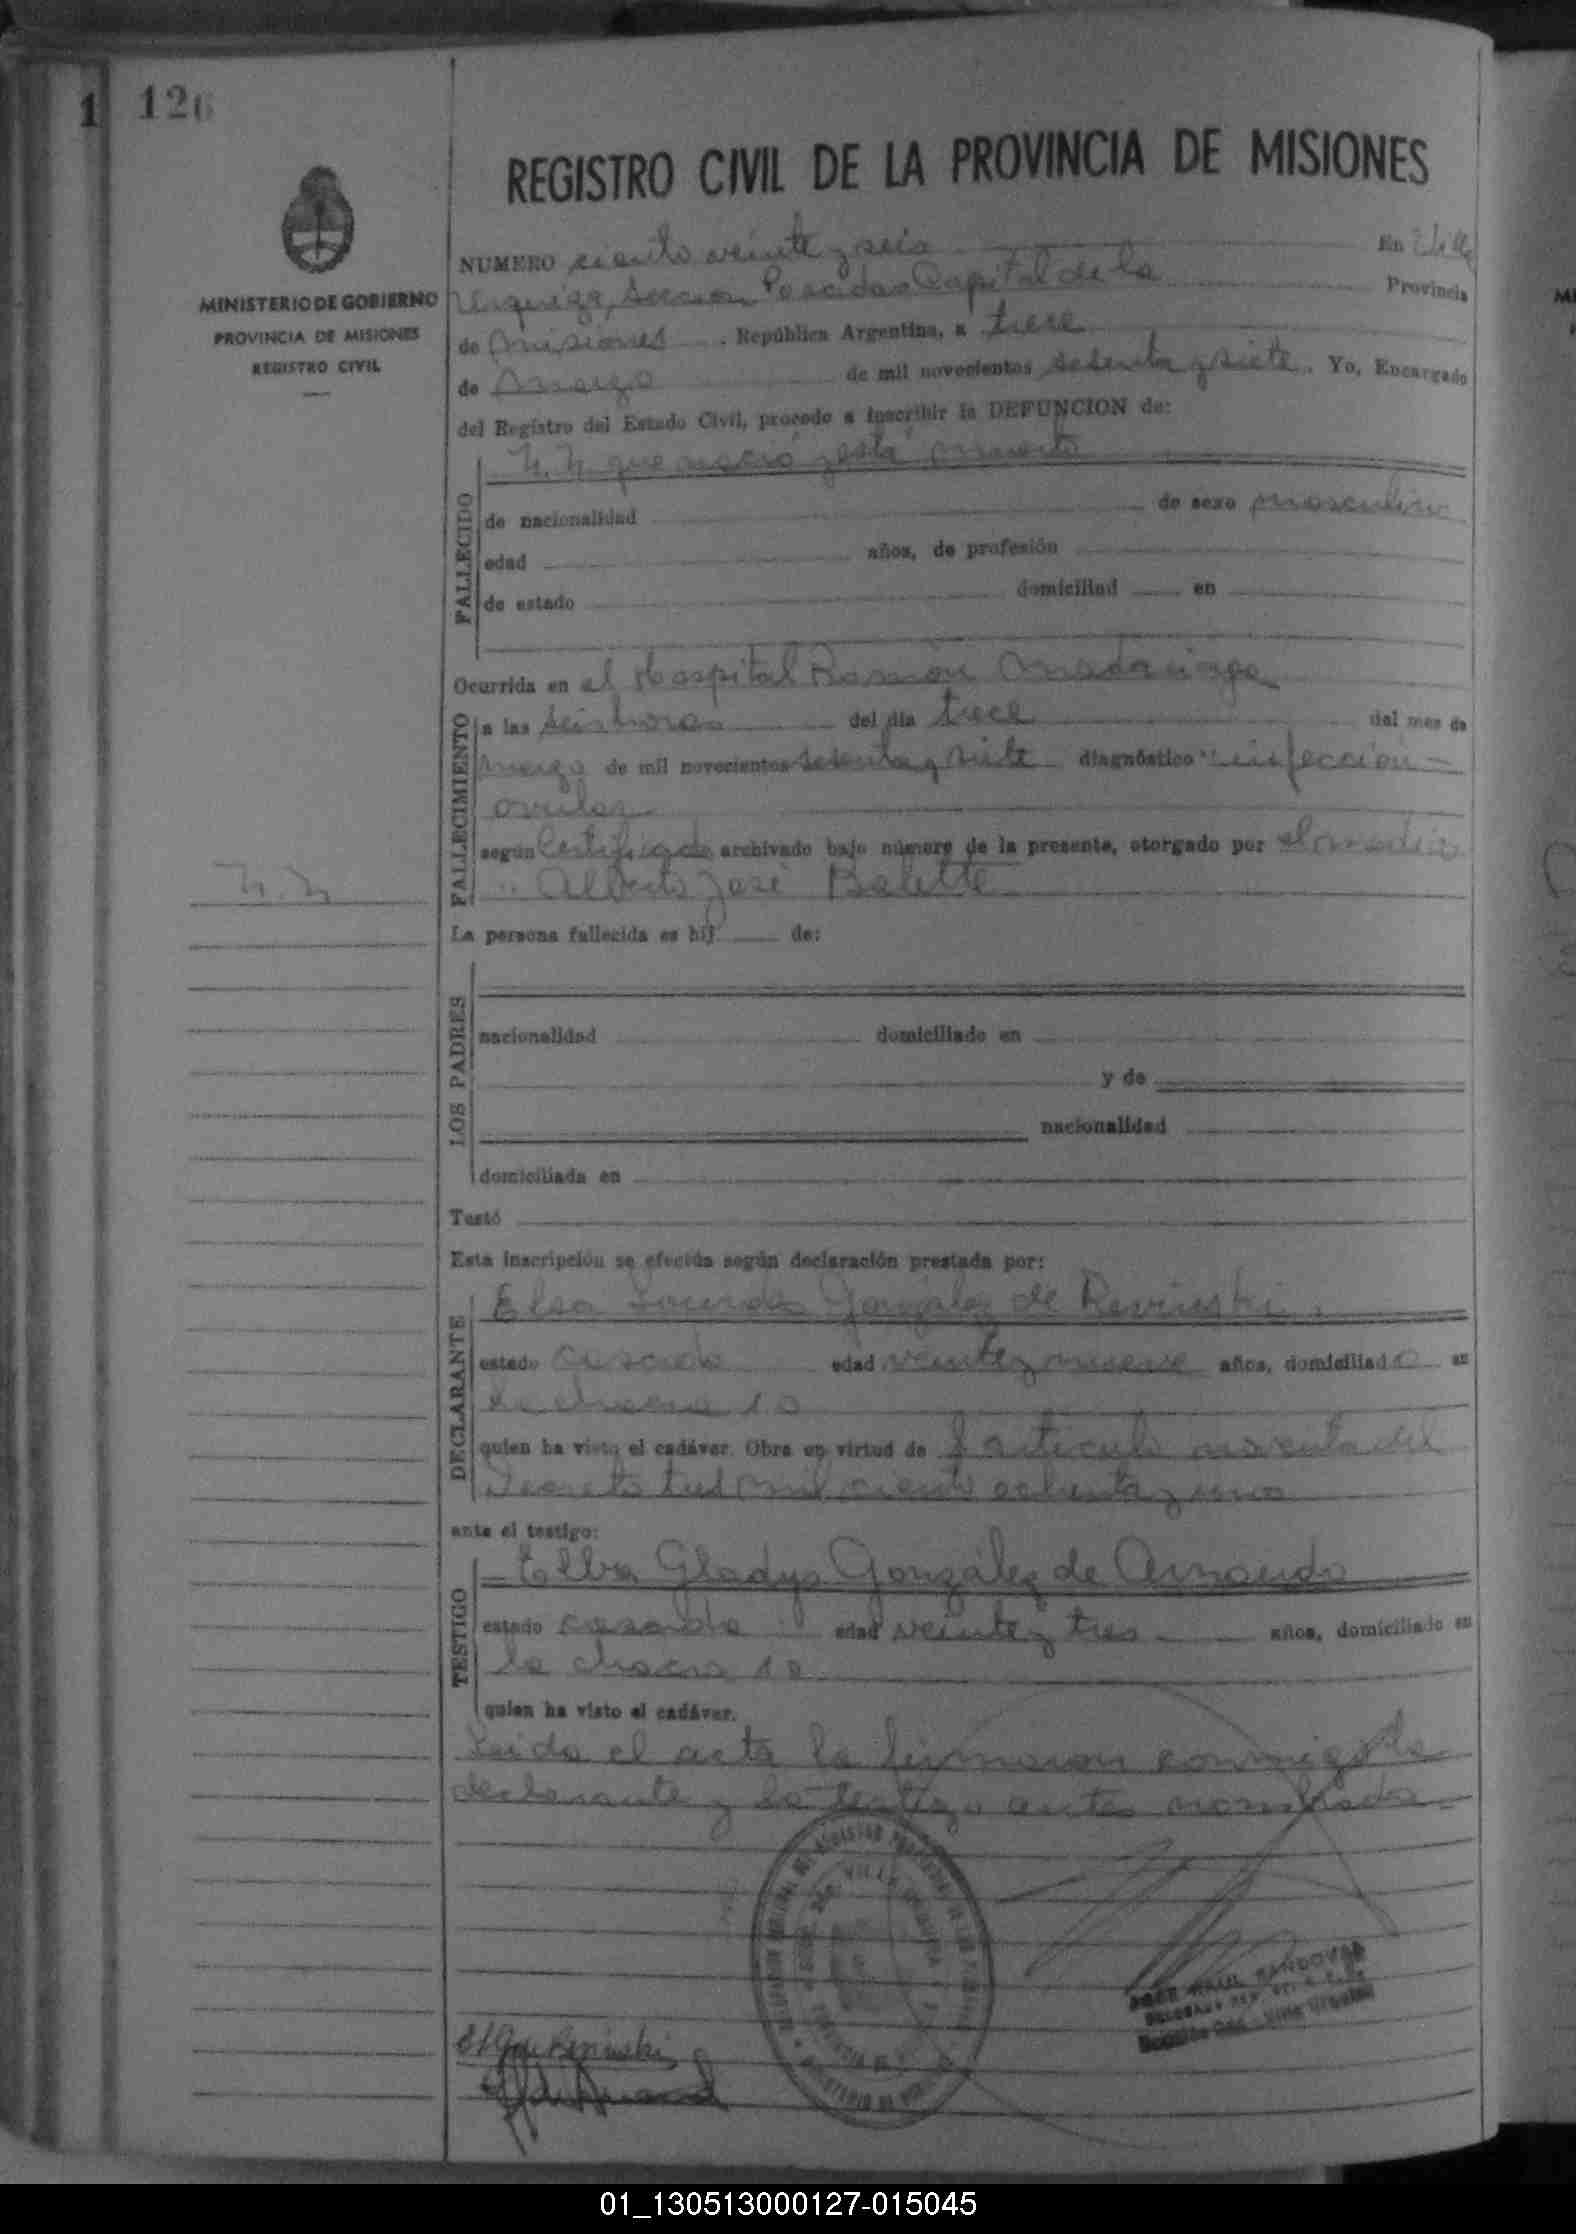 1 126
REGISTRO CIVIL DE LA PROVINCIA DE MISIONES
MINISTERIO DE GOBIERNO
PROVINCIA DE MISIONES
REGISTRO CIVIL
NUMERO ciento veinte y seis En Villa
Urquiza, Sección Posadas Capital de la Provincia
de Misiones, República Argentina, a trece
de Marzo de mil novecientos sesenta y siete. Yo, Encargado
del Registro del Estado Civil, procedo a inscribir la DEFUNCION de:
N. N. que nació y está muerto
FALLECIDO
de nacionalidad de sexo masculino
edad años, de profesión
de estado domiciliad en
Ocurrida en el Hospital Ramón Madariaga
FALLECIMIENTO
a las seis horas del día trece del mes de
marzo de mil novecientos sesenta y siete diagnóstico "infección
ovular
según Certificado archivado bajo número de la presente, otorgado por el medico
N. N
" Alberto José Balette
La persona fallecida es hij de:
LOS PADRES
nacionalidad domiciliado en
y de
nacionalidad
domiciliada en
Testó
Esta inscripción se efectúa según declaración prestada por:
DECLARANTE
Elsa Lourdes González de Revinski
estado casada edad veinte y nueve años, domiciliad a en
la chacra 10
quien ha visto el cadáver. Obra en virtud de l articulo noventa del
Decreto tres mil ciento ochenta y uno
ante el testigo:
TESTIGO
Elba Gladys González de
estado casada edad veinte y tres años, domiciliado en
la chacra 10
quien ha visto el cadáver.
Leida el acta la firmaron conmigo la
declarante y la testigo antes nombrada.
VILLA URQUIZA
JOSE RAUL SANDOVAL
Villa Urquiza
01_130513000127-015045